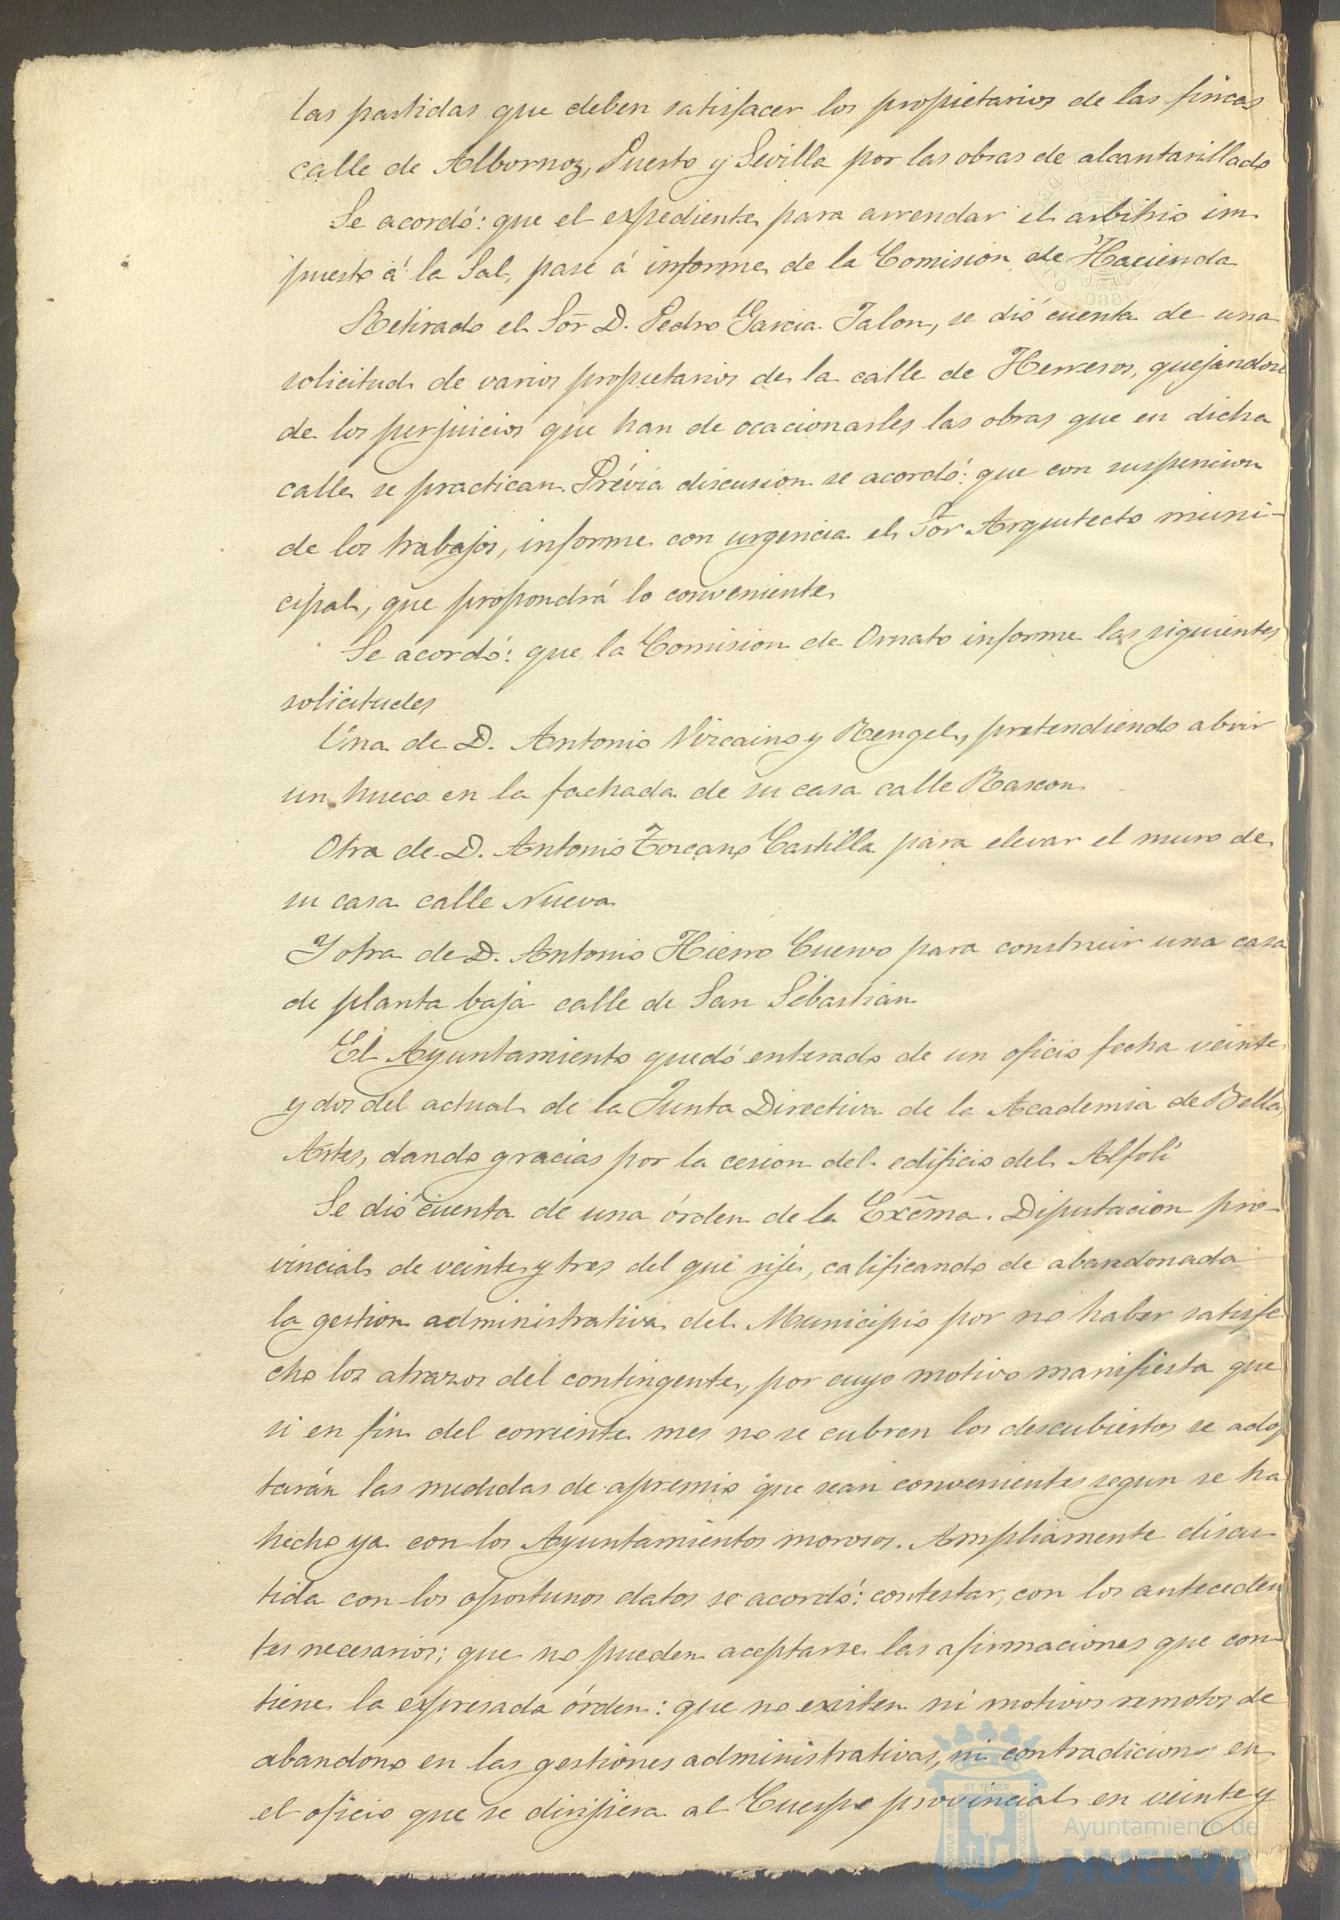 las partidas que deben satisfacer los propietarios de las fincas
calle de Albornoz, Puerto y Sevilla por las obras de alcantarillado
Se acordó: que el expediente para arrendar el arbitrio im
puesto á la Sal, pase á informe de la Comision de Hacienda
Retirado el Sor̃ D. Pedro Garcia Jalon, se dió cuenta de una
solicitud de varios propietarios de la calle de Herreros, quejandose
de los perjuicios que han de ocacionarles las obras que en dicha
calle se practican. Prévia discusion se acordó: que con suspencion
de los trabajos, informe con urgencia el Sor̃ Arquitecto muni-
cipal, que propondrá lo conveniente
Se acordó: que la Comision de Ornato informe las siguientes
solicitudes
Una de D. Antonio Vizcaino y Rengel, pretendiendo abrir
un hueco en la fachada de su casa calle Rascon
Otra de D. Antonio Toscano Castilla para elevar el muro de
su casa calle Nueva
Y otra de D. Antonio Hierro Cuervo para construir una casa
de planta baja calle de San Sébastian
El Ayuntamiento quedó enterado de un oficio fecha veinte
y dos del actual de la Junta Directiva de la Academia de Bellas
Artes, dando gracias por la cesion del edificio del Alfolí
Se dió cuenta de una órden de la Excm̃a. Diputacion pro-
vincial de veinte y tres del que rije, calificando de abandonada
la gestion administrativa del Municipio por no haber satisfe
cho los atrazos del contingente, por cuyo motivo manifiesta que
si en fin del corriente mes no se cubren los descubiertos se adop
tarán las medidas de apremio que sean convenientes segun se ha
hecho ya con los Ayuntamientos morosos. Ampliamente discu-
tida con los oportunos datos se acordó: contestar, con los anteceden
tes necesarios; que no pueden aceptarse las afirmaciones que con-
tiene la expresada órden: que no existen ni motivos remotos de
abandono en las gestiones administrativas, ni contradicion en
el oficio que se dirijiera al Cuerpo provincial en veinte y
Ayuntamiento de
HUELVA